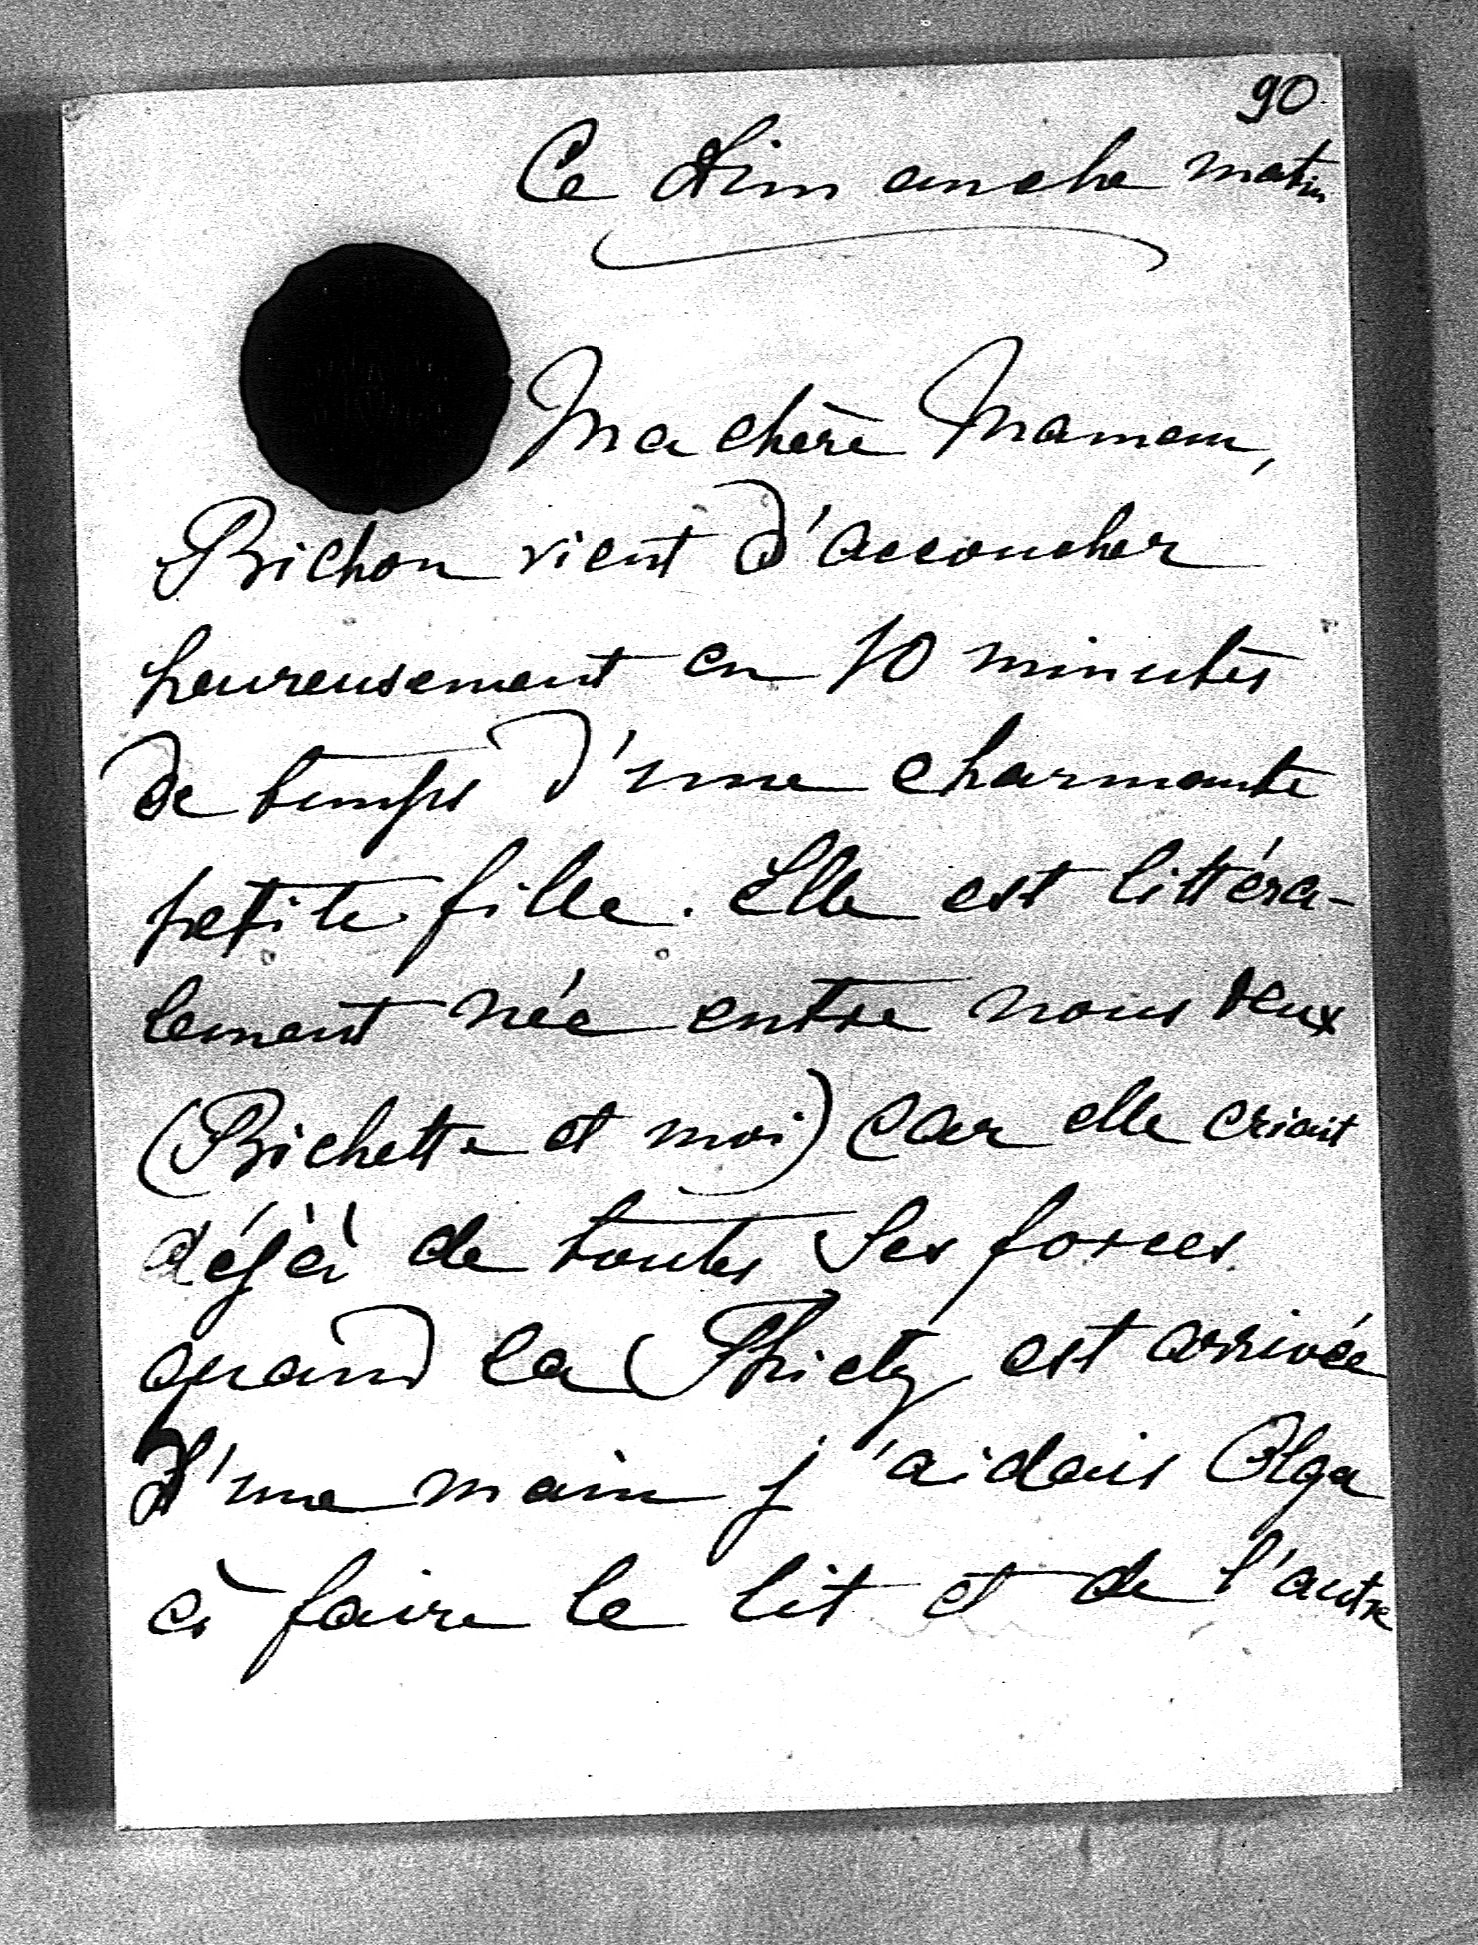 90.
Ce dimanche matin
Ma chère Maman,
Bichon vient d'accoucher
heureusement en 10 minutes
de temps d'une charmante
petite fille. Elle est littéra-
lement née entre nous deux
(Bichette et moi) car elle criait
déjà de toutes ses forces.
quand la est arrivée
D'une main j'aidais Olga
à faire le lit et de l'autre